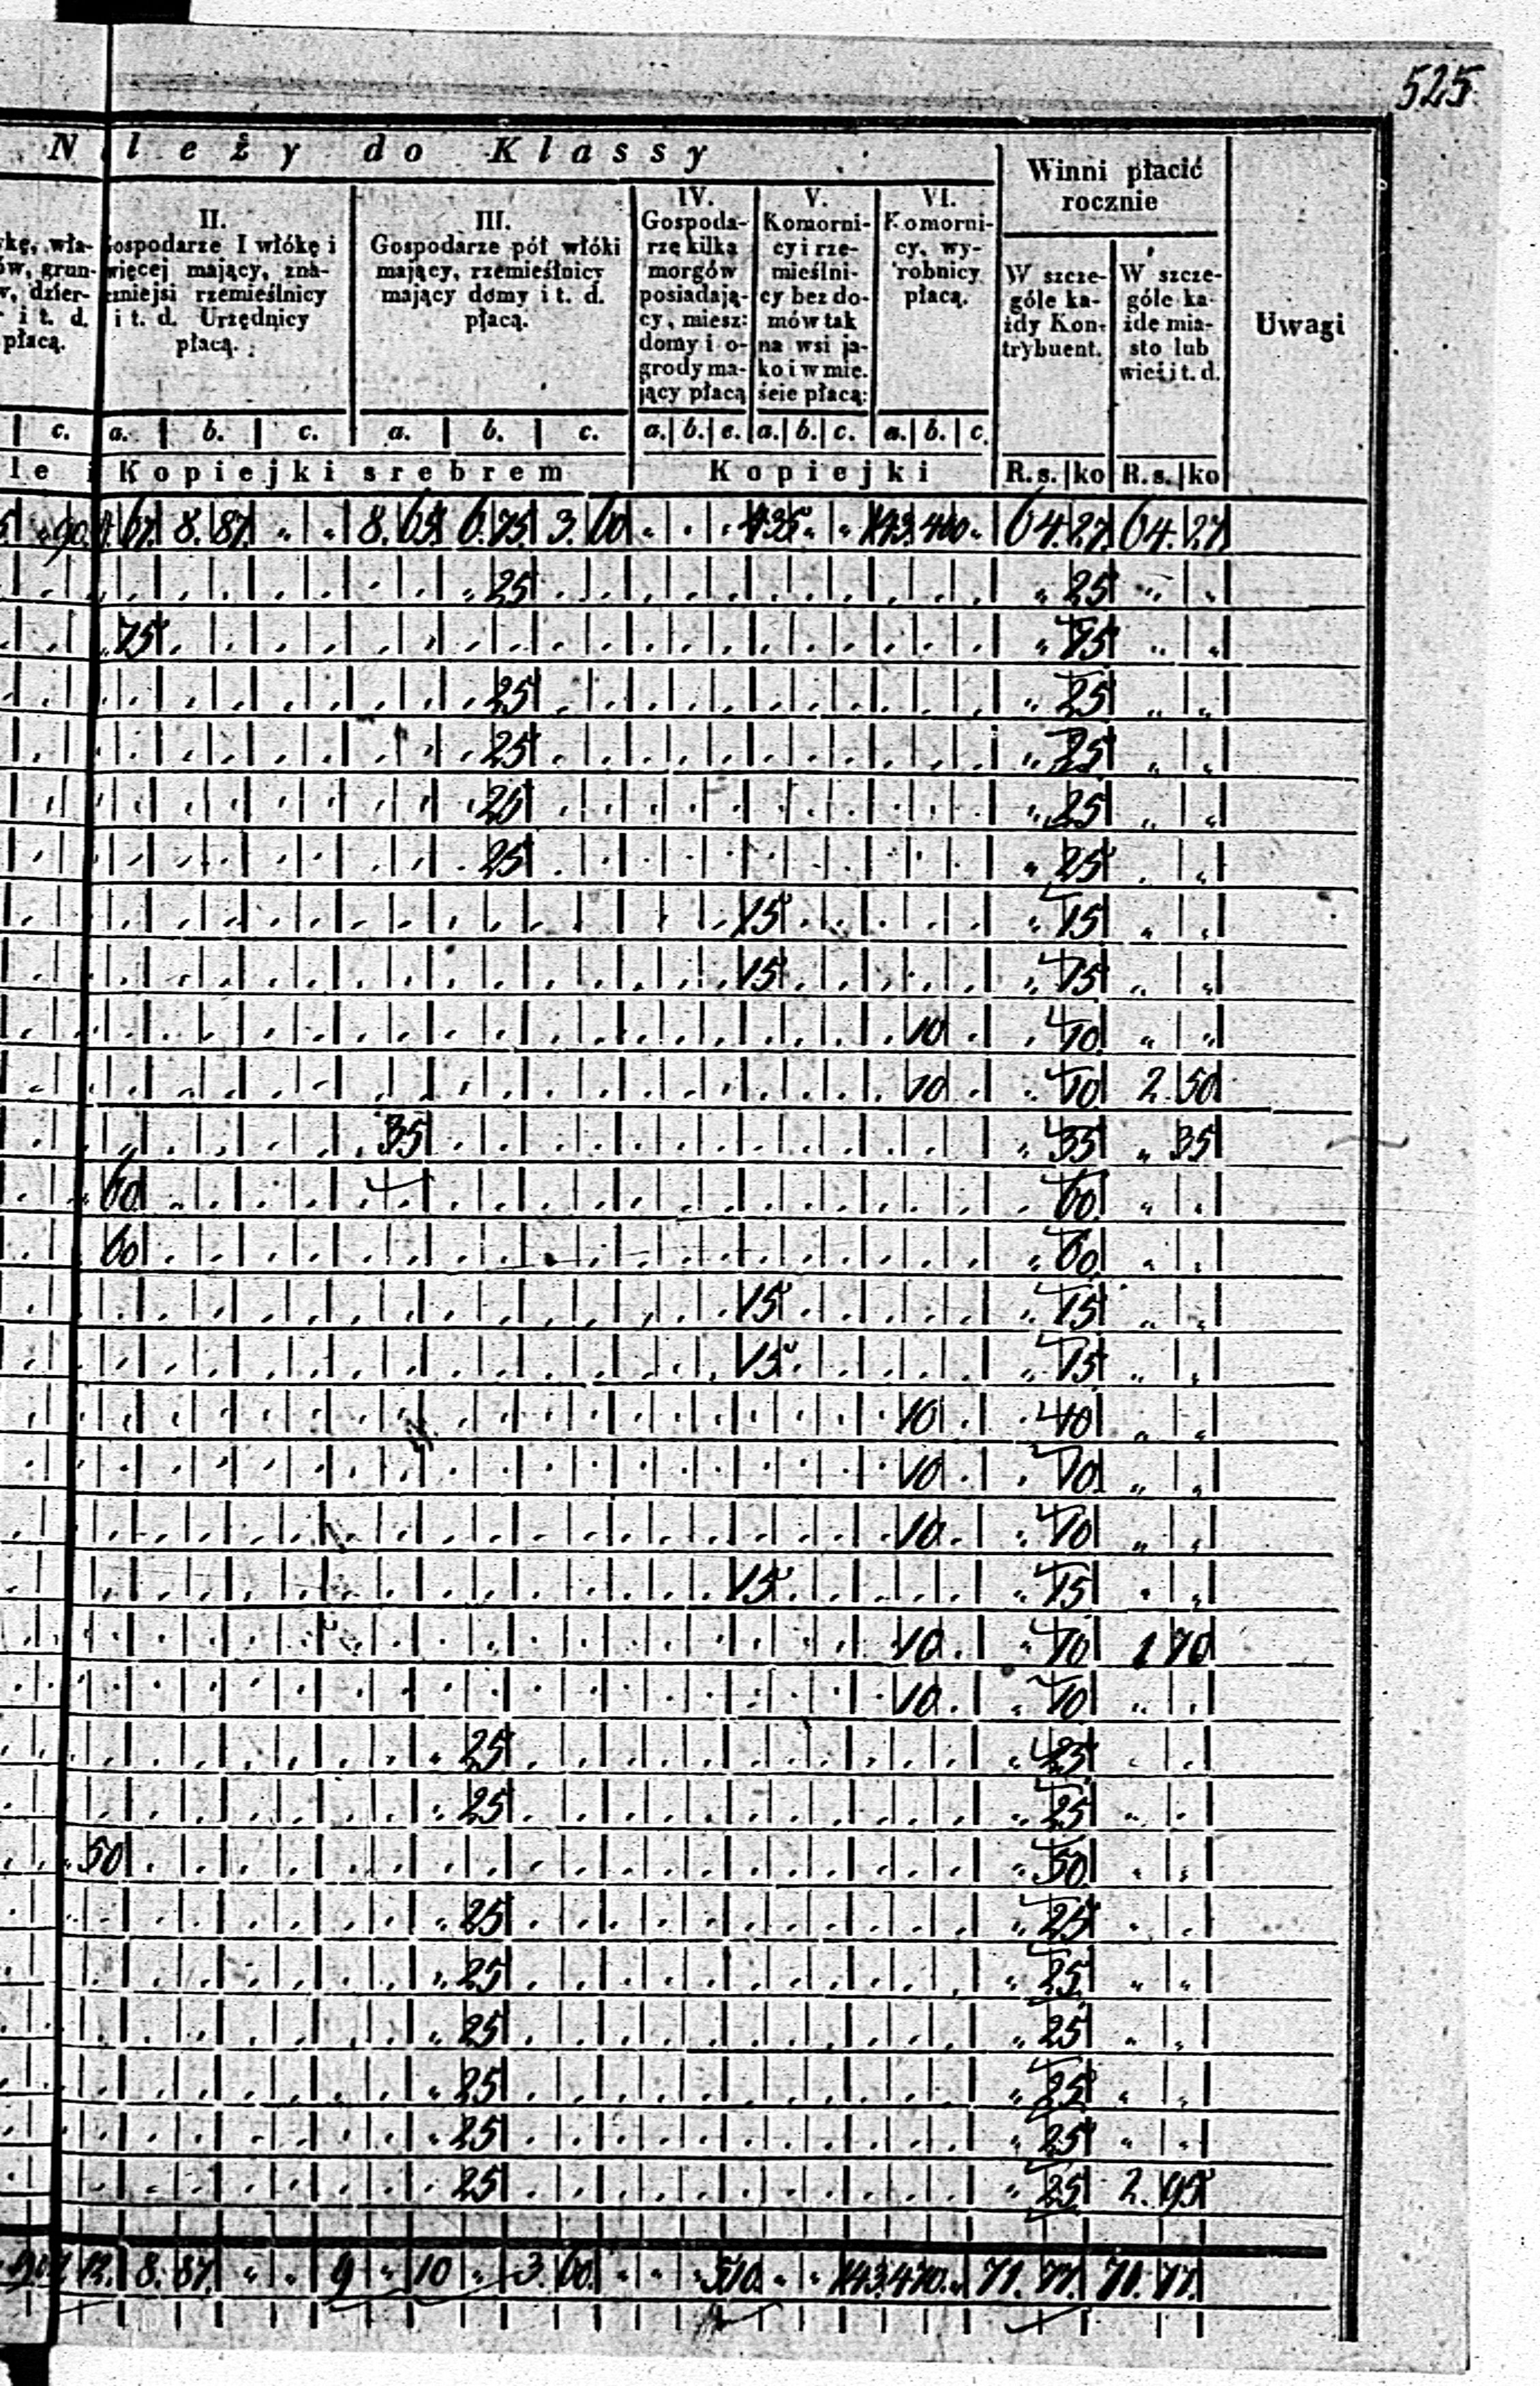 525.
N leży do Klassy
Winni płacić rocznie
kę, wła-
ów, grun-
w, dzier-
i t. d.
płacą.
II.
Gospodarze I włókę i
więcej mający, zna-
czniejsi rzemieślnicy
i t. d. Urzędnicy
płacą.
III.
Gospodarze pół włóki
mający, rzemieślnicy
mający domy i t. d.
płacą.
IV.
Gospoda-
rze kilka
morgów
posiadają-
cy, miesz:
domy i o-
grody ma-
jący płacą
V.
Komorni-
cy i rze-
mieślni-
cy bez do-
mów tak
na wsi ja-
ko i w mie.
ście płacą:
VI.
Komorni-
cy, wy-
robnicy
płacą.
W szcze-
góle ka-
żdy Kon-
trybuent.
W szcze-
góle ka-
żde mia-
sto lub
wieś i t. d.
Uwagi
c. a. b. c. a. b. c. a. b. c. a. b. c. a. b. c.
le i Kopiejki srebrem Kopiejki R.s. ko R.s. ko
90. 67. 8. 87. " " 8. 65 6. 75 3. 60 " 435 " " 143 400 " 64. 27. 64. 27.
25 " 25 " "
75 " 75 " "
25 " 25 " "
25 " 25 " "
25 " 25 " "
25 " 25 " "
15 " 15 " "
15 " 15 " "
10 " 10 " "
10 " 10 2. 50
35 " 35 " 35
60 " 60 " "
60 " 60 " "
15 " 15 " "
15 " 15 " "
10 " 10 " "
10 " 10 " "
10 " 10 " "
15 " 15 " "
10 " 10 1 70
10 " 10 " "
25 " 25 " "
25 " 25 " "
50 " 50 " "
25 " 25 " "
25 " 25 " "
25 " 25 " "
25 " 25 " "
25 " 25 " "
25 " 25 2. 95
12. 8. 87. " " 9 " 10 " 3. 60. " " 510 " " 143 470 " 71. 77. 71. 77.